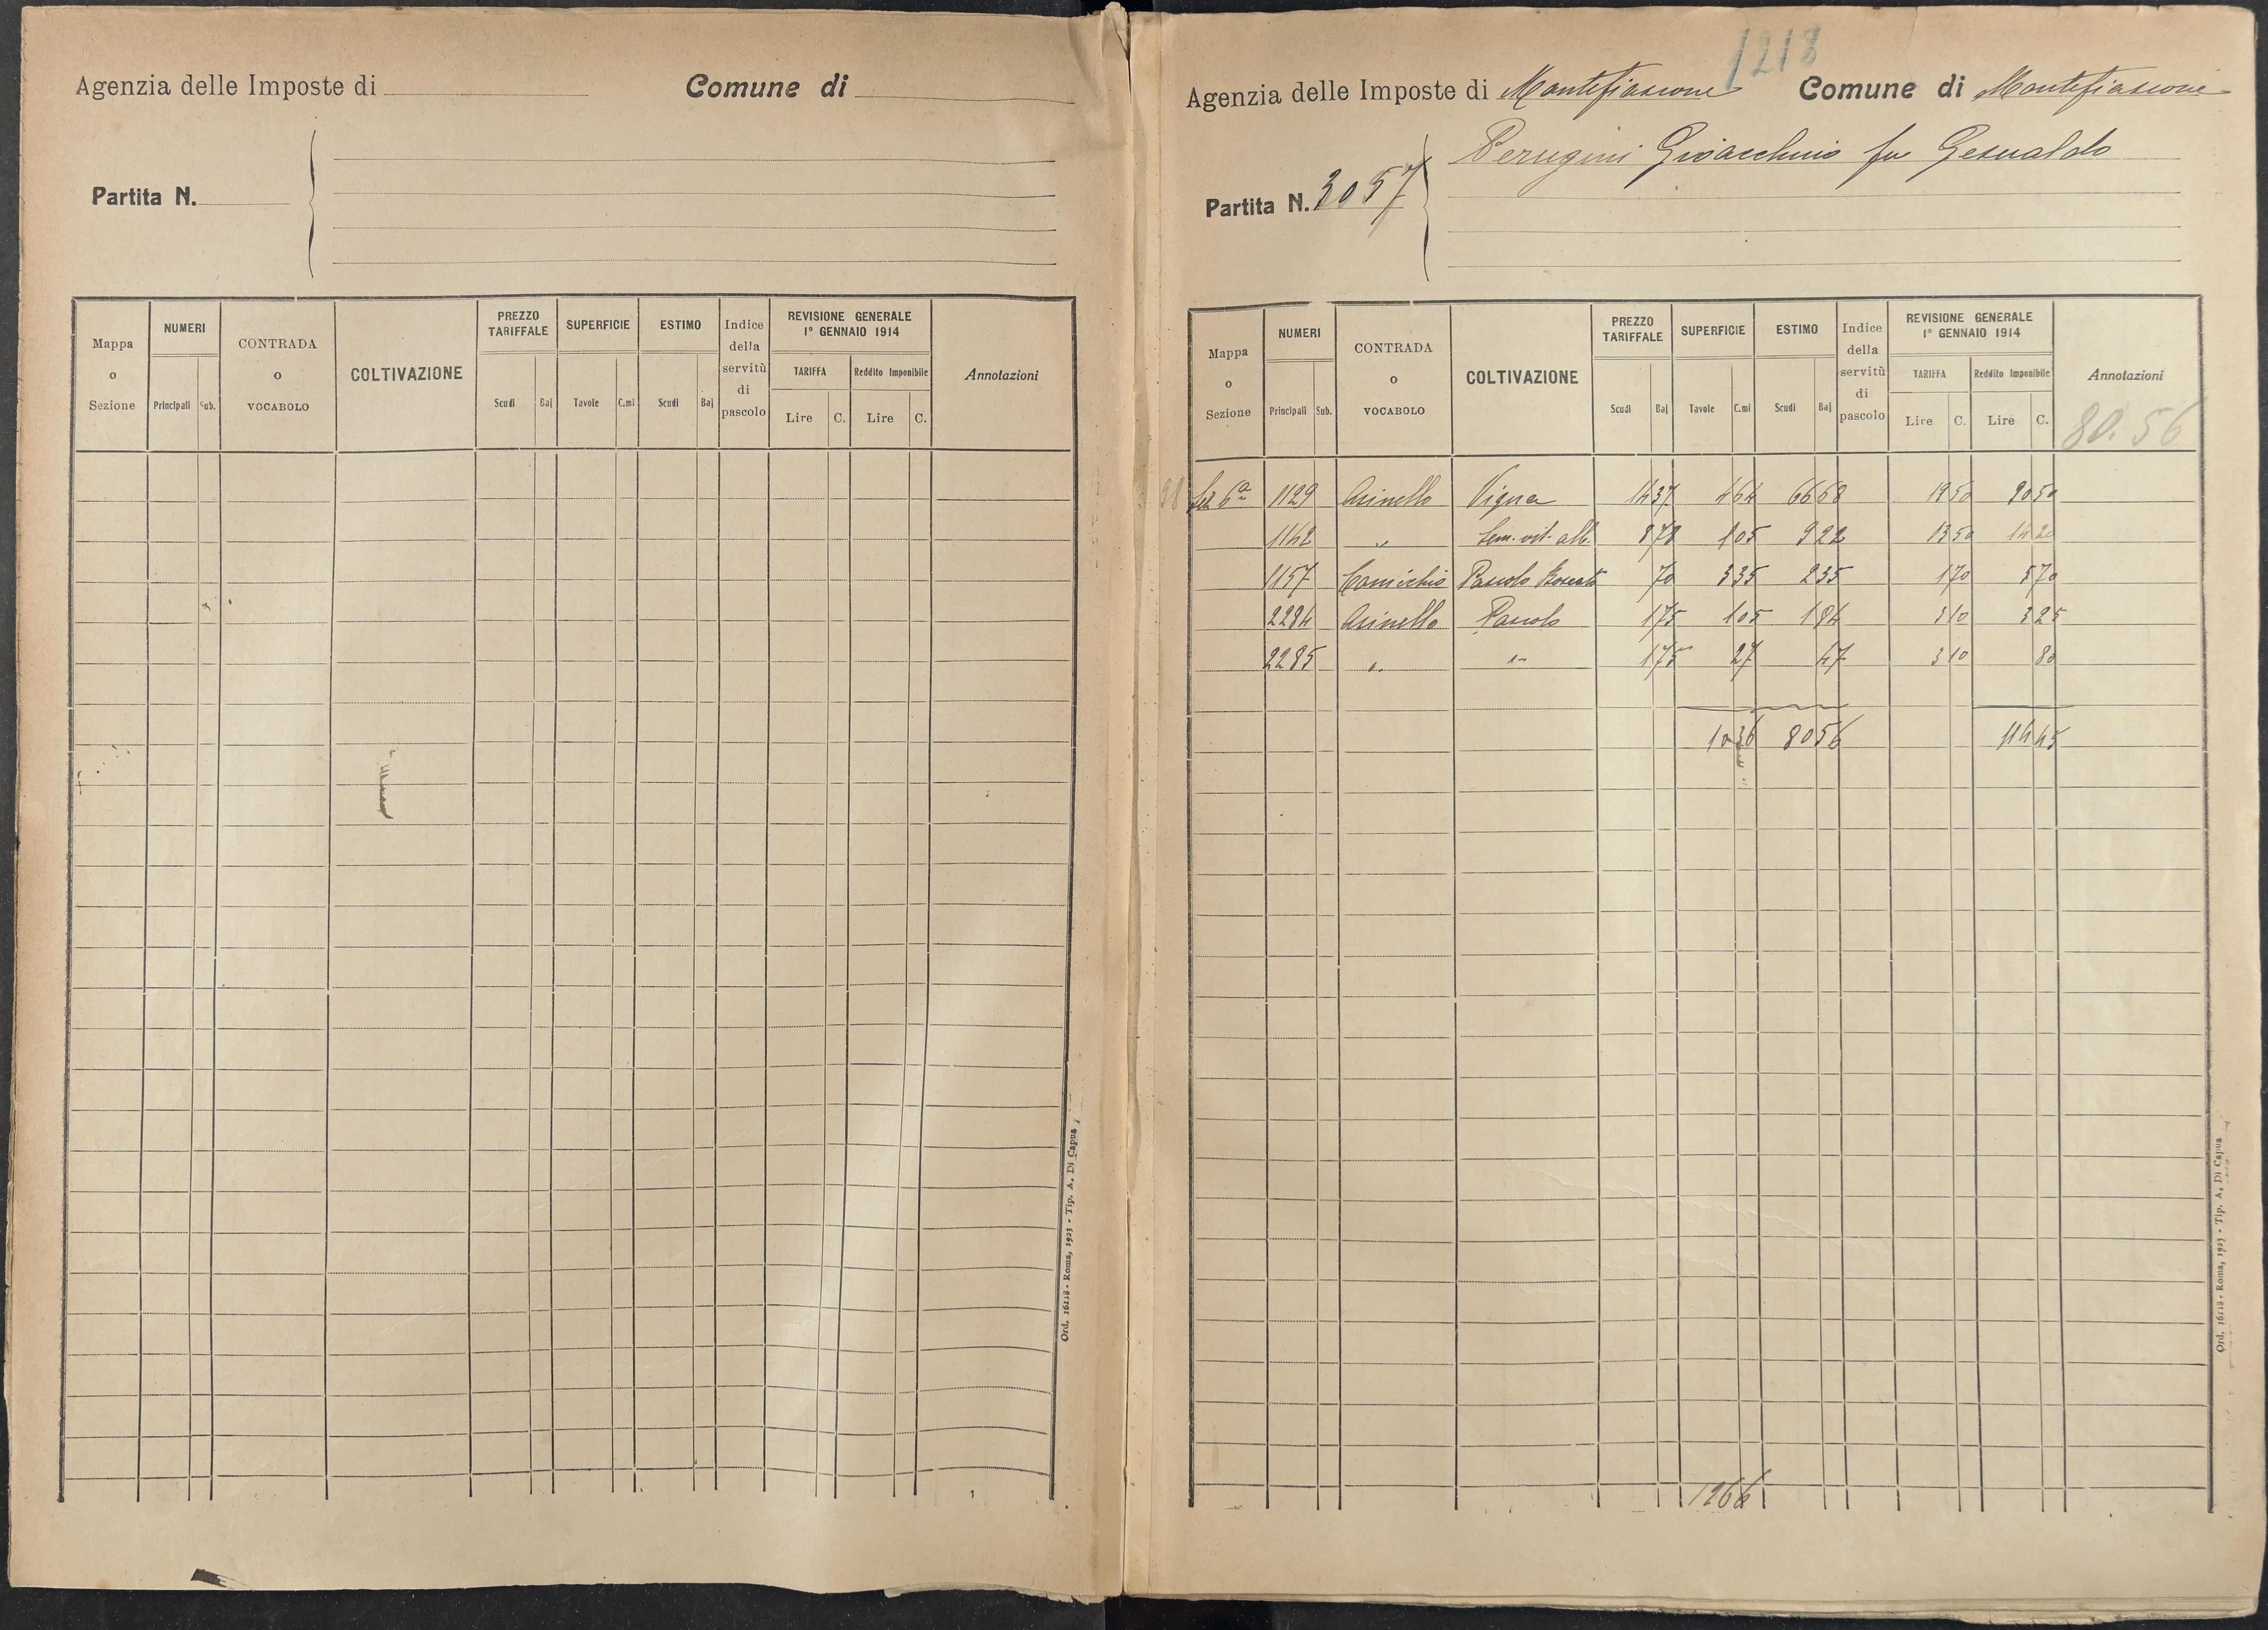 Agenzia delle Imposte di
Comune di
Partita N.
Mappa o Sezione
NUMERI
Principali
Sub.
CONTRADA o VOCABOLO
COLTIVAZIONE
PREZZO TARIFFALE
Scudi
Baj
SUPERFICIE
Tavole
C.mi
ESTIMO
Scudi
Baj
Indice della servitù di pascolo
REVISIONE GENERALE 1° GENNAIO 1914
TARIFFA
Reddito Imponibile
Lire
C.
Lire
C.
Annotazioni
Ord. 16118 - Roma, 1923 - Tip. A. Di Capua
1218
Agenzia delle Imposte di Montefiascone Comune di Montefiascone
Perugini Gioacchino fu Gesualdo
Partita N. 3057
Mappa o Sezione
NUMERI
Principali
Sub.
CONTRADA o VOCABOLO
COLTIVAZIONE
PREZZO TARIFFALE
Scudi
Baj
SUPERFICIE
Tavole
C.mi
ESTIMO
Scudi
Baj
Indice della servitù di pascolo
REVISIONE GENERALE 1° GENNAIO 1914
TARIFFA
Reddito Imponibile
Lire
C.
Lire
C.
Annotazioni
80.56
Sez 6a 1129 Asinello Vigna 14 37 4 64 66 68 19 50 90 50
1142 " Sem. vit. alb. 8 78 1 05 9 22 13 50 14 20
1157 Pascolo Boscato 70 3 35 2 35 1 70 5 70
2284 Asinello Pascolo 1 75 1 05 1 84 3 10 3 25
2285 " " 1 75 27 47 3 10 80
10 36 80 56 114 45
1266
Ord. 16118 - Roma, 1923 - Tip. A. Di Capua